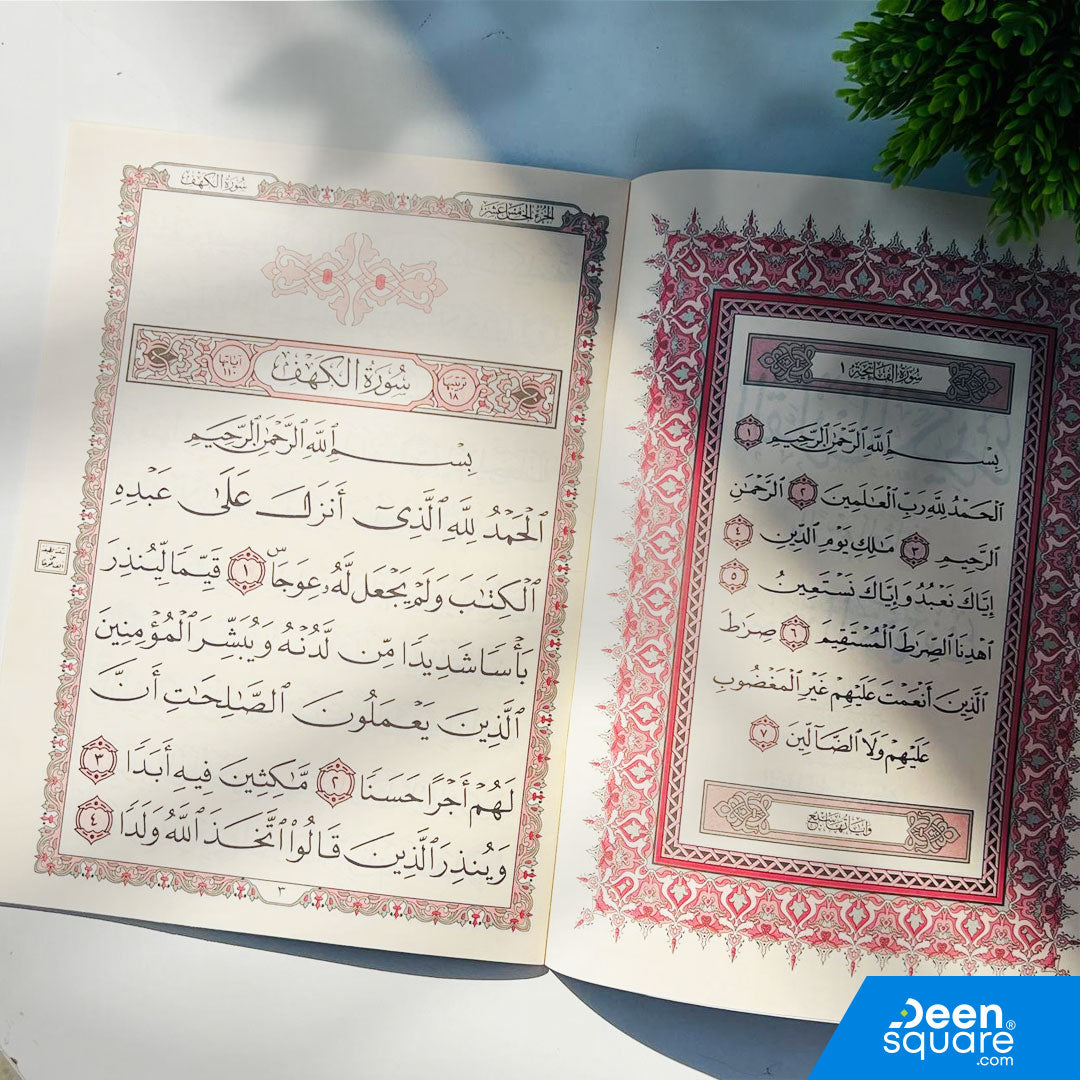 سُورَةُ الْفَاتِحَةِ ١
بِسْمِ ٱللَّهِ ٱلرَّحْمَٰنِ ٱلرَّحِيمِ ١
ٱلْحَمْدُ لِلَّهِ رَبِّ ٱلْعَٰلَمِينَ ٢ ٱلرَّحْمَٰنِ
ٱلرَّحِيمِ ٣ مَٰلِكِ يَوْمِ ٱلدِّينِ ٤
إِيَّاكَ نَعْبُدُ وَإِيَّاكَ نَسْتَعِينُ ٥
ٱهْدِنَا ٱلصِّرَٰطَ ٱلْمُسْتَقِيمَ ٦ صِرَٰطَ
ٱلَّذِينَ أَنْعَمْتَ عَلَيْهِمْ غَيْرِ ٱلْمَغْضُوبِ
عَلَيْهِمْ وَلَا ٱلضَّآلِّينَ ٧
وَآيَاتُهَا سَبْعٌ
الجزء الخامس عشر
سُورَةُ الكهف
ترتيبها ١٨ سُورَةُ الْكَهْفِ آياتها ١١٠
بِسْمِ ٱللَّهِ ٱلرَّحْمَٰنِ ٱلرَّحِيمِ
ٱلْحَمْدُ لِلَّهِ ٱلَّذِىٓ أَنزَلَ عَلَىٰ عَبْدِهِ
ٱلْكِتَٰبَ وَلَمْ يَجْعَل لَّهُۥ عِوَجَاۜ ١ قَيِّمًا لِّيُنذِرَ
بَأْسًا شَدِيدًا مِّن لَّدُنْهُ وَيُبَشِّرَ ٱلْمُؤْمِنِينَ
ٱلَّذِينَ يَعْمَلُونَ ٱلصَّٰلِحَٰتِ أَنَّ
لَهُمْ أَجْرًا حَسَنًا ٢ مَّٰكِثِينَ فِيهِ أَبَدًا ٣
وَيُنذِرَ ٱلَّذِينَ قَالُوا۟ ٱتَّخَذَ ٱللَّهُ وَلَدًا ٤
٣
Deen
square®
.com